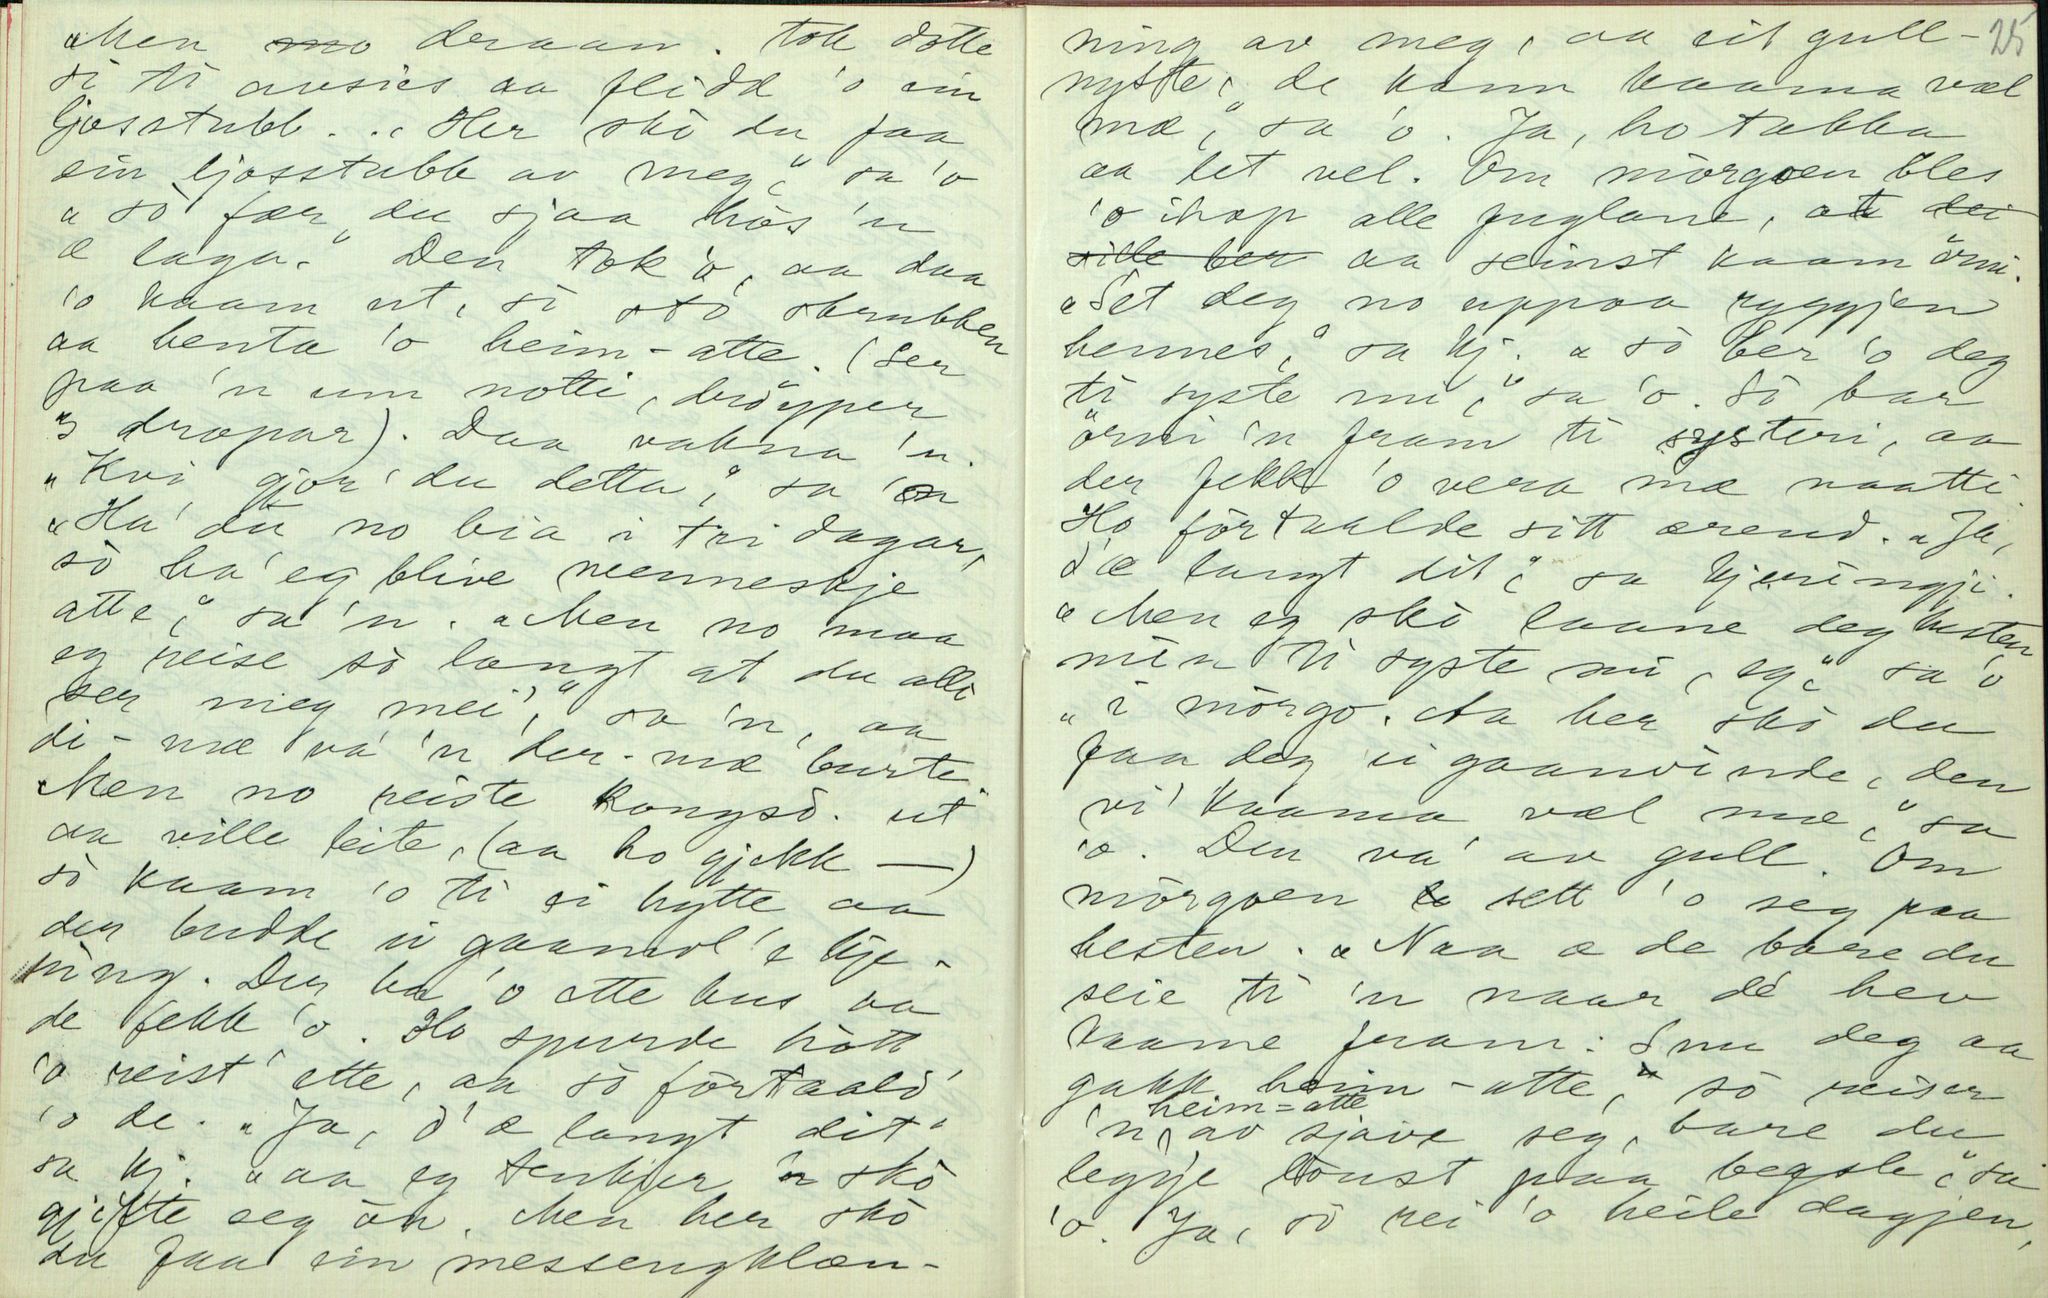 "Men deraan. tok dotte
si ti avsies aa flidd 'o ein
ljosstubb. "Her skò du faa
ein ljosstubb av meg," sa 'o
"sò fær du sjaa hòs 'n
æ laga." Den tok 'o, aa daa
'o kaam ut, sò stó skrubben
aa henta 'o heim-atte. (Ser
paa 'n um notti, drøyper
3 dropar). Daa vakna 'n.
"Kvi gjor' du detta," sa 'n
"Ha' du no bia i tri dagar,
sò ha' eg blive menneskje
atte," sa 'n. "Men no maa
eg reise sò langt at du alli
ser meg mei'," sa 'n, aa
di-mæ va' 'n der-mæ burte
Men no reiste kongsd. ut
aa ville leite, (aa ho gjekk —)
sò kaam 'o ti ei hytte aa
der budde ei gaamol 'e kje-
ring. Der ba 'o ette hus aa
de fekk 'o. Ho spurde hòtt
'o reist' ette, aa sò förtaald'
'o de. "Ja, d'æ langt dit"
sa kj. "aa eg tenkjer 'n skò
gjifte seg òn. Men her skò
du faa ein messengklæn-
25
ning av meg, aa eit gull-
nyste, de kann kaama væl
mæ," sa 'o. Ja, ho takka
aa let vel. Om mörgoen bles
'o ihop alle fuglane, at dei
ville ber aa seinst kaam örni.
"Set deg no uppaa ryggjen
hennes," sa kj. "sò ber 'o deg
ti syste mi," sa 'o. Sò bar
örni 'n fram ti systeri, aa
der fekk 'o vera mæ naatti.
Ho förtaalde sitt ærend. "Ja,
d'æ langt dit," sa kjeringji.
"Men eg skò laane deg hesten
min ti syste mi, eg," sa 'o
"i mörgo. Aa her skò du
faa deg ei gaanvinde, den
vi' kaama væl mæ," sa
'o. Den va' av gull. Om
mörgoen sett 'o seg paa
hesten. "Naa æ de bare du
seie ti 'n naar dé hev
kaame fram: Snu deg aa
gakk heim-atte," sò reiser
heim=atte
'n, av sjave seg, bare du
legje lonst paa begsle," sa
'o. Ja, sò rei 'o heile dagjen,